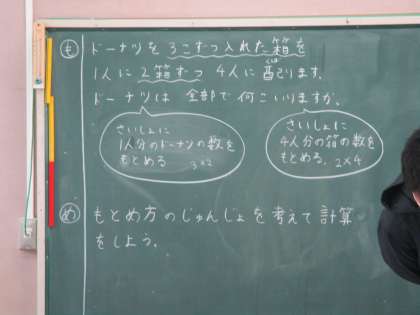 も
ドーナツを 3こずつ入れた箱を
1人に 2箱ずつ 4人に配ります。
くば
ドーナツは 全部で何こいりますか。
さいしょに
1人分のドーナツの数を
もとめる 3×2
さいしょに
4人分の箱の数を
もとめる。 2×4
め
もとめ方のじゅんじょを考えて計算
をしよう。